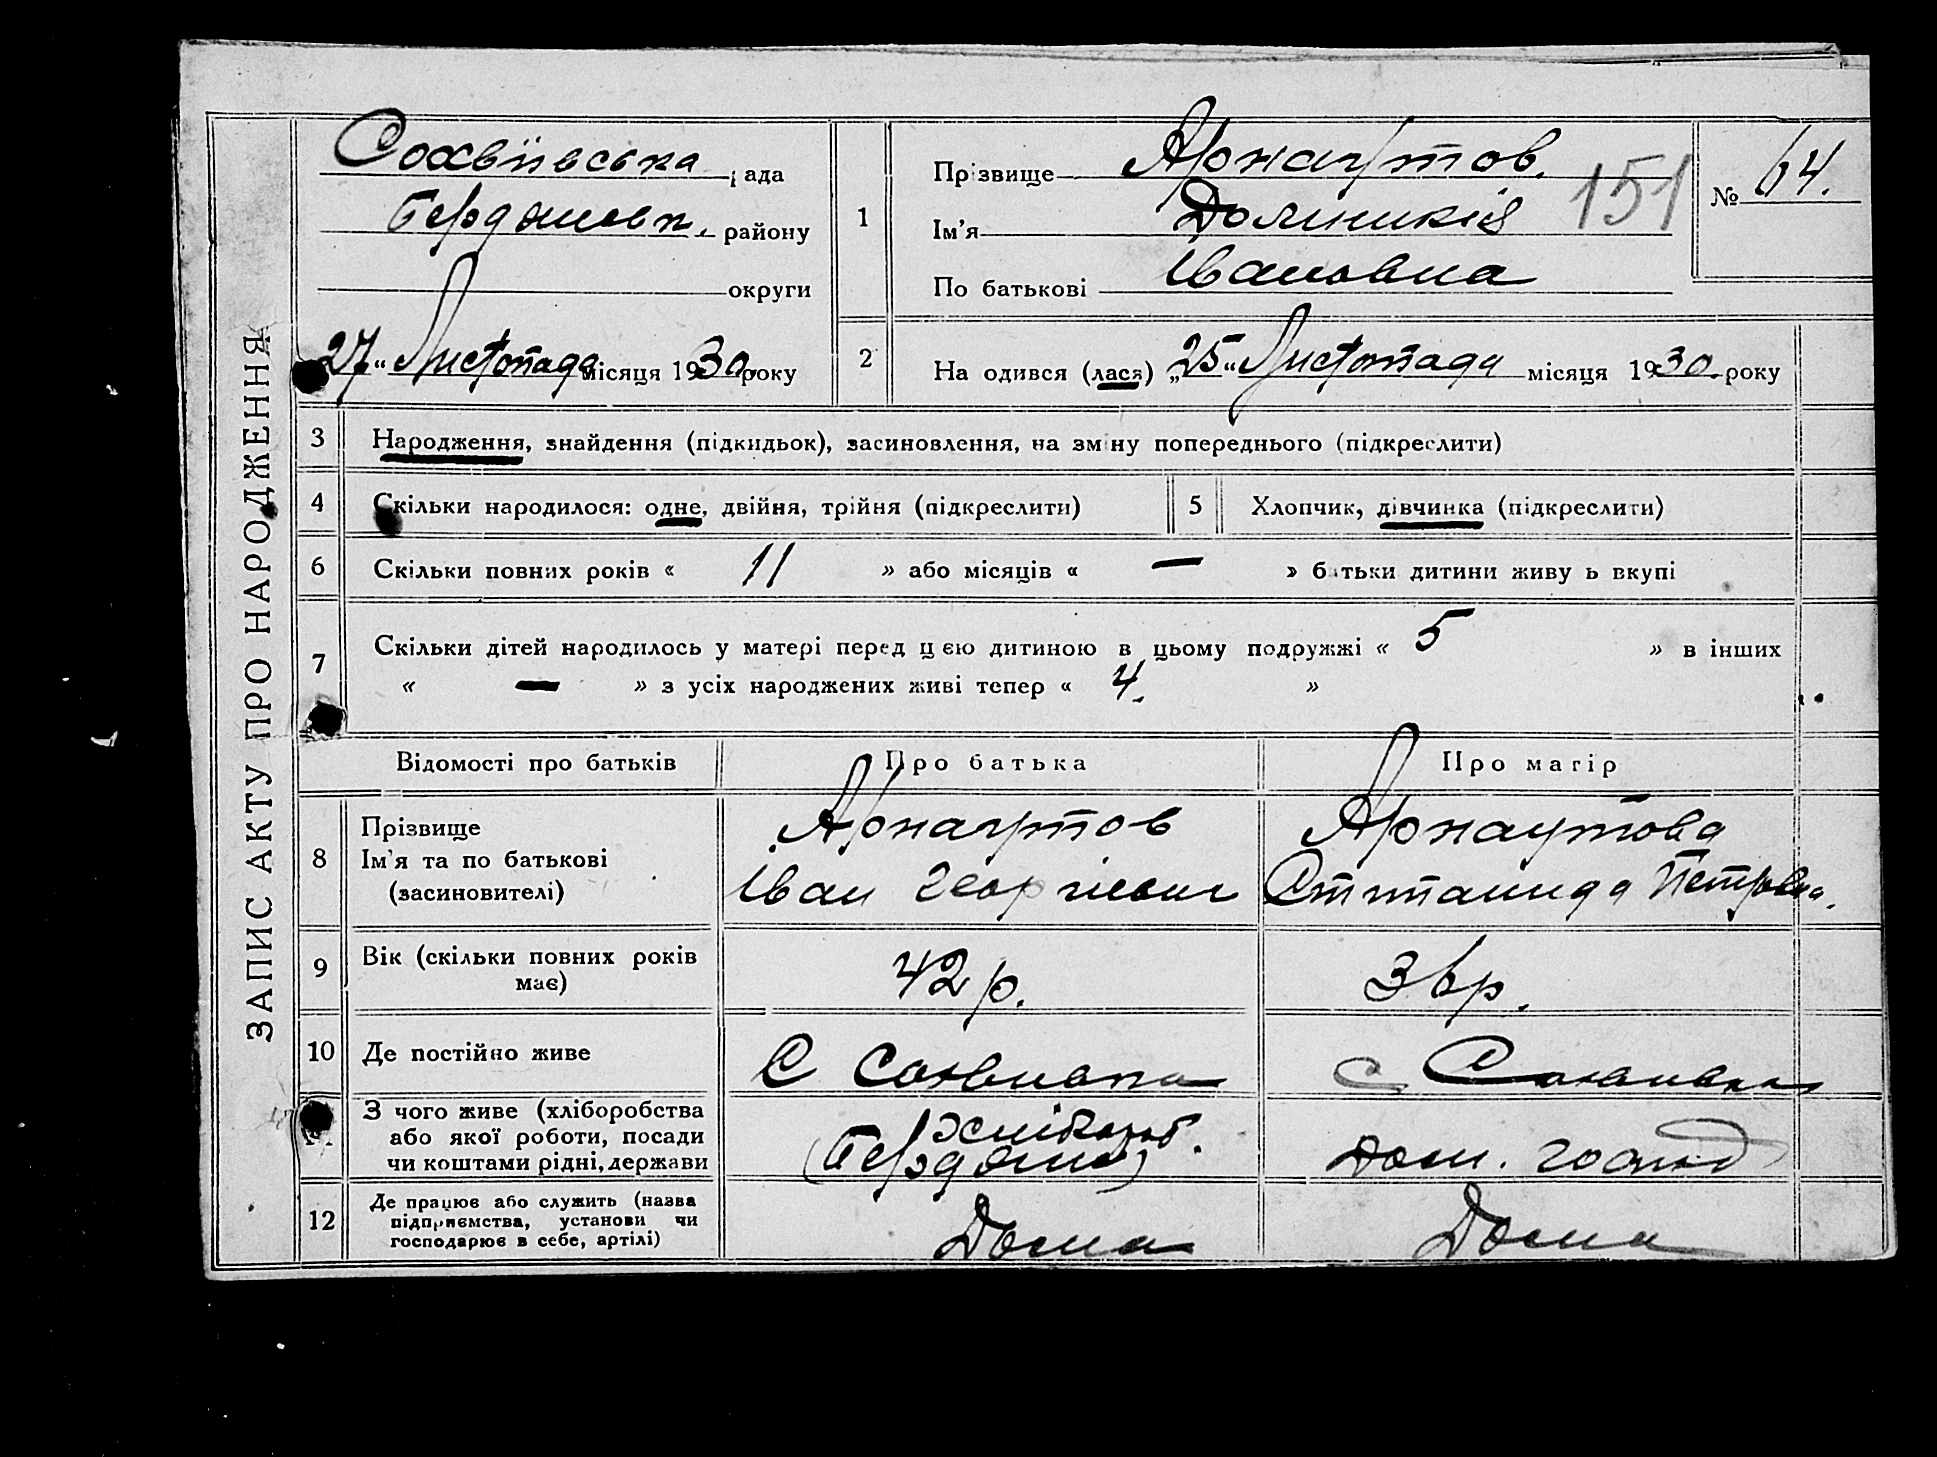 ЗАПИС АКТУ ПРО НАРОДЖЕННЯ
Софиівська рада
Бердянськ. району
округи
27 „ Листопада місяця 1930 року
1
Прізвище Арнаутов.
Ім'я Домникія
По батькові Івановна
151
№ 64.
2
На одився (лася) „25“ Листопада місяця 1930 року
3 Народження, знайдення (підкидьок), засиновлення, на зміну попереднього (підкреслити)
4 Скільки народилося: одне, двійня, трійня (підкреслити)
5 Хлопчик, дівчинка (підкреслити)
6 Скільки повних років « 11 » або місяців « — » батьки дитини живуть вкупі
7 Скільки дітей народилось у матері перед цією дитиною в цьому подружжі « 5 » в інших
« — » з усіх народжених живі тепер « 4. »
Відомості про батьків Про батька Про матір
8 Прізвище
Ім'я та по батькові
(засиновителі)
Арнаутов
Іван Георгієвич
Арнаутова
Петровна.
9 Вік (скільки повних років
має)
42 р.
36р.
10 Де постійно живе
С
с
З чого живе (хліборобства
або якої роботи, посади
чи коштами рідні, держави
хлібороб.
дом. господ
12 Де працює або служить (назва
підприємства, установи чи
господарює в себе, артілі)
Дома
Дома